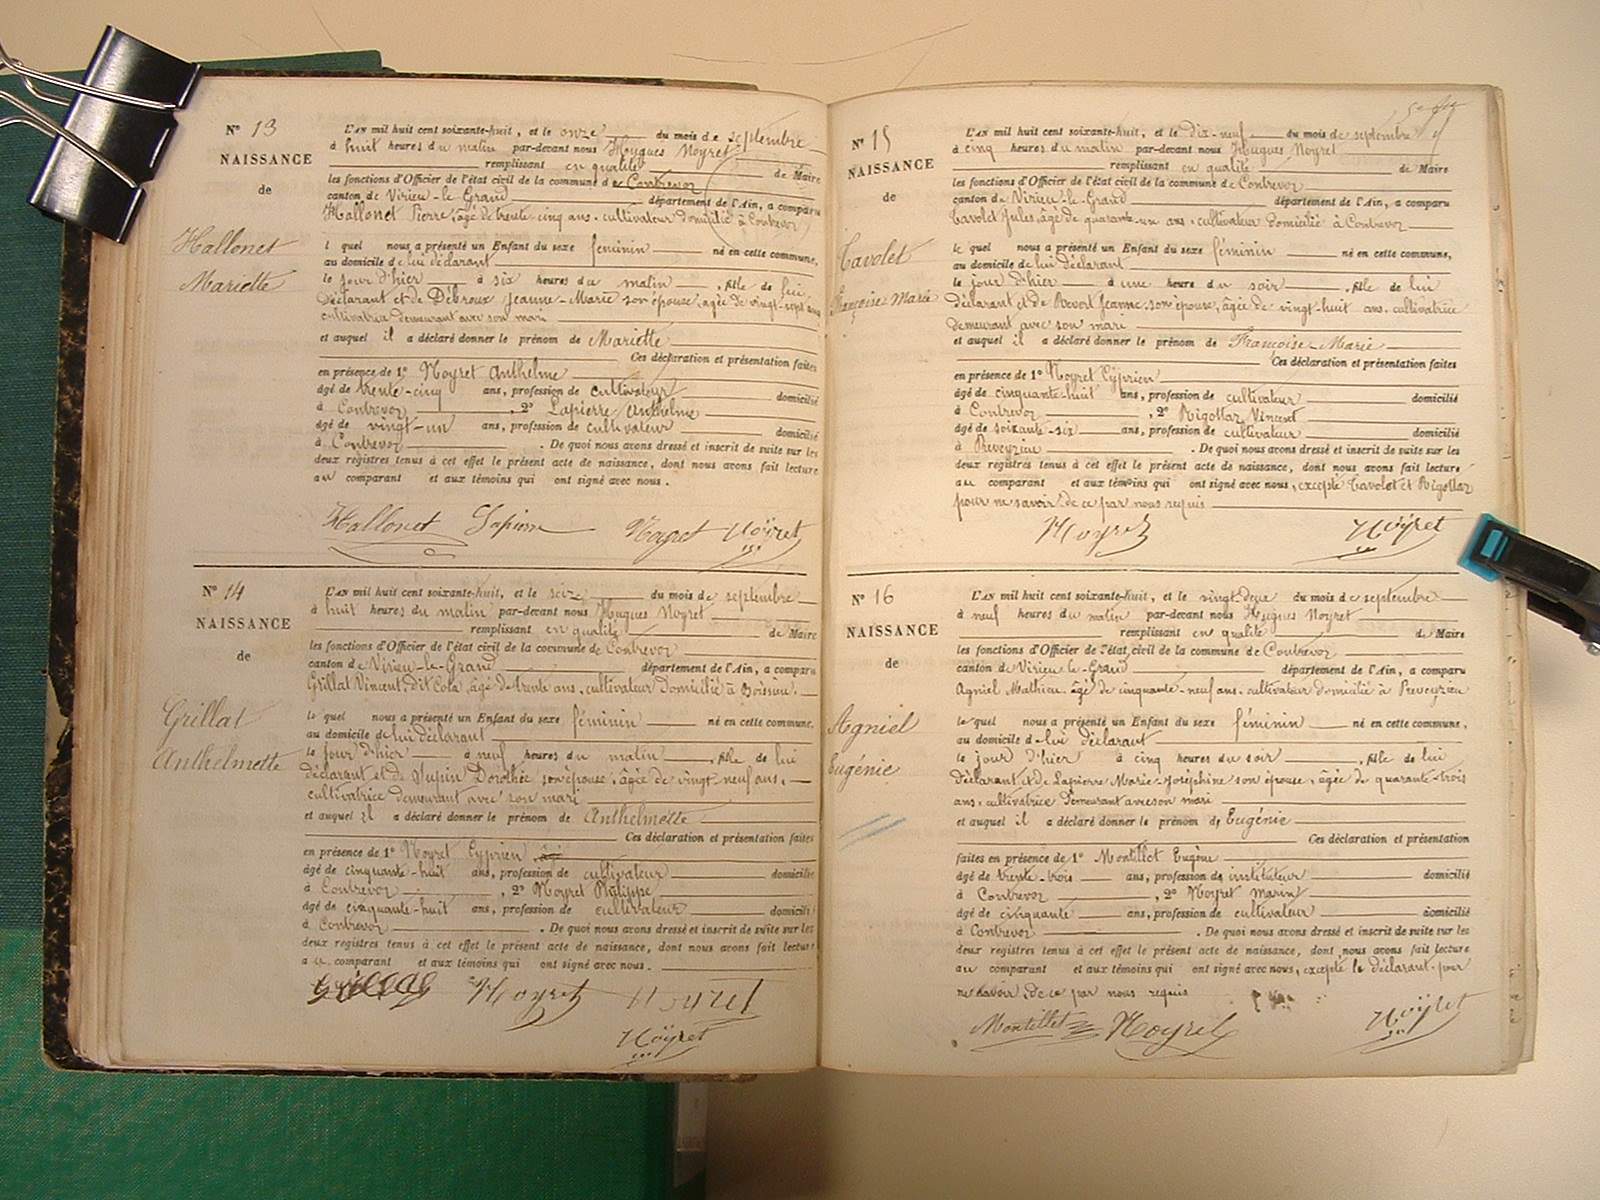 N° 13
NAISSANCE
de
Hallonet
Mariette
L'AN mil huit cent soixante-huit, et le onze du mois de septembre
à huit heures du matin par-devant nous Hugues Noyret
remplissant en qualité de Maire
les fonctions d'Officier de l'état civil de la commune de Contrevoz
canton de Virieu-le-Grand département de l'Ain, a comparu
Hallonet Pierre, âgé de trente-cinq ans, cultivateur domicilié à Contrevoz
lequel nous a présenté un Enfant du sexe féminin né en cette commune,
au domicile de lui déclarant
le jour d'hier à six heures du matin, fille de lui
déclarant et de Debroux Jeanne-Marie son épouse, âgée de vingt-sept ans
cultivatrice demeurant avec son mari
et auquel il a déclaré donner le prénom de Mariette
Ces déclaration et présentation faites
en présence de 1° Noyret Anthelme
âgé de trente-cinq ans, profession de cultivateur domicilié
à Contrevoz, 2° Lapierre Anthelme
âgé de vingt-un ans, profession de cultivateur domicilié
à Contrevoz. De quoi nous avons dressé et inscrit de suite sur les
deux registres tenus à cet effet le présent acte de naissance, dont nous avons fait lecture
au comparant et aux témoins qui ont signé avec nous.
Hallonet Lapierre Noyret Noÿret
N° 14
NAISSANCE
de
Grillat
Anthelmette
L'AN mil huit cent soixante-huit, et le seize du mois de septembre
à huit heures du matin par-devant nous Hugues Noyret
remplissant en qualité de Maire
les fonctions d'Officier de l'état civil de la commune de Contrevoz
canton de Virieu-le-Grand département de l'Ain, a comparu
Grillat Vincent, dit Cola, âgé de trente ans, cultivateur domicilié à Boissieu.
lequel nous a présenté un Enfant du sexe féminin né en cette commune,
au domicile de lui déclarant
le jour d'hier à neuf heures du matin, fille de lui
déclarant et de Jupin Dorothée son épouse, âgée de vingt-neuf ans,
cultivatrice demeurant avec son mari
et auquel il a déclaré donner le prénom de Anthelmette
Ces déclaration et présentation faites
en présence de 1° Noyret Cyprien âgé
âgé de cinquante-huit ans, profession de cultivateur domicilié
à Contrevoz, 2° Noyret Philippe
âgé de cinquante-huit ans, profession de cultivateur domicilié
à Contrevoz. De quoi nous avons dressé et inscrit de suite sur les
deux registres tenus à cet effet le présent acte de naissance, dont nous avons fait lecture
au comparant et aux témoins qui ont signé avec nous.
Grillat Noyret Noyret
Noÿret
N° 15
NAISSANCE
de
Tavolet
Françoise Marie
L'AN mil huit cent soixante-huit, et le dix-neuf du mois de septembre
à cinq heures du matin par-devant nous Hugues Noyret
remplissant en qualité de Maire
les fonctions d'Officier de l'état civil de la commune de Contrevoz
canton de Virieu-le-Grand département de l'Ain, a comparu
Tavolet Jules, âgé de quarante-un ans, cultivateur domicilié à Contrevoz
lequel nous a présenté un Enfant du sexe féminin né en cette commune,
au domicile de lui déclarant
le jour d'hier à une heure du soir, fille de lui
déclarant et de Revort Jeanne, son épouse, âgée de vingt-huit ans, cultivatrice
demeurant avec son mari
et auquel il a déclaré donner le prénom de Françoise-Marie
Ces déclaration et présentation faites
en présence de 1° Noyret Cyprien
âgé de cinquante-huit ans, profession de cultivateur domicilié
à Contrevoz, 2° Rigollaz Vincent
âgé de soixante-six ans, profession de cultivateur domicilié
à Preveyzieu. De quoi nous avons dressé et inscrit de suite sur les
deux registres tenus à cet effet le présent acte de naissance, dont nous avons fait lecture
au comparant et aux témoins qui ont signé avec nous, excepté Tavolet et Rigollaz
pour ne savoir, de ce par nous requis
Noyret Noÿret
N° 16
NAISSANCE
de
Agniel
Eugénie
L'AN mil huit cent soixante-huit, et le vingt-deux du mois de septembre
à neuf heures du matin par-devant nous Hugues Noyret
remplissant en qualité de Maire
les fonctions d'Officier de l'état civil de la commune de Contrevoz
canton de Virieu-le-Grand département de l'Ain, a comparu
Agniel Mathieu, âgé de cinquante-neuf ans, cultivateur domicilié à Preveyzieu
lequel nous a présenté un Enfant du sexe féminin né en cette commune,
au domicile de lui déclarant
le jour d'hier à cinq heures du soir, fille de lui
déclarant et de Lapierre Marie-Joséphine son épouse, âgée de quarante-trois
ans, cultivatrice demeurant avec son mari
et auquel il a déclaré donner le prénom de Eugénie
Ces déclaration et présentation
faites en présence de 1° Montillet Eugène
âgé de trente-trois ans, profession de instituteur domicilié
à Contrevoz, 2° Noyret Marin
âgé de cinquante ans, profession de cultivateur domicilié
à Contrevoz. De quoi nous avons dressé et inscrit de suite sur les
deux registres tenus à cet effet le présent acte de naissance, dont nous avons fait lecture
au comparant et aux témoins qui ont signé avec nous, excepté le déclarant pour
ne savoir, de ce par nous requis
Montillet Noyret Noÿret